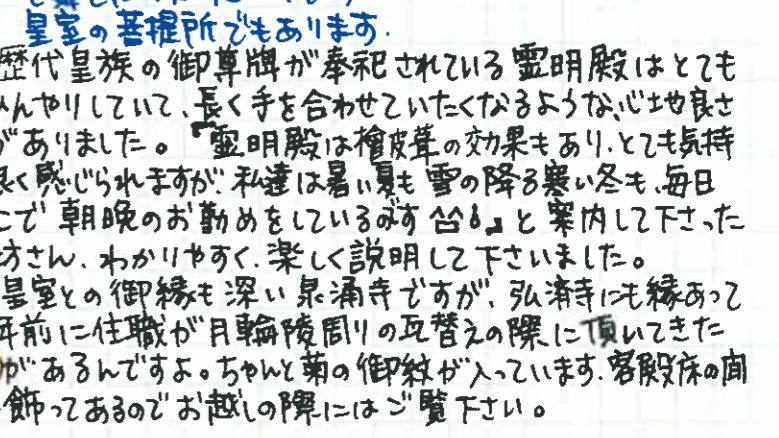 皇室の菩提所でもあります.
歴代皇族の御尊牌が奉祀されている霊明殿はとても
ひんやりしていて、長く手を合わせていたくなるような、心地良さ
がありました。『霊明殿は檜皮葺の効果もあり、とても気持
良く感じられますが、私達は暑い夏も雪の降る寒い冬も、毎日
こで朝晩のお勤めをしているみす』と案内して下さった
坊さん、わかりやすく、楽しく説明して下さいました。
皇室との御縁も深い泉涌寺ですが、弘済寺にも縁あって
年前に住職が月輪陵周りの瓦替えの際に頂いてきた
があるんですよ。ちゃんと菊の御紋が入っています.客殿床の間
飾ってあるのでお越しの際にはご覧下さい。